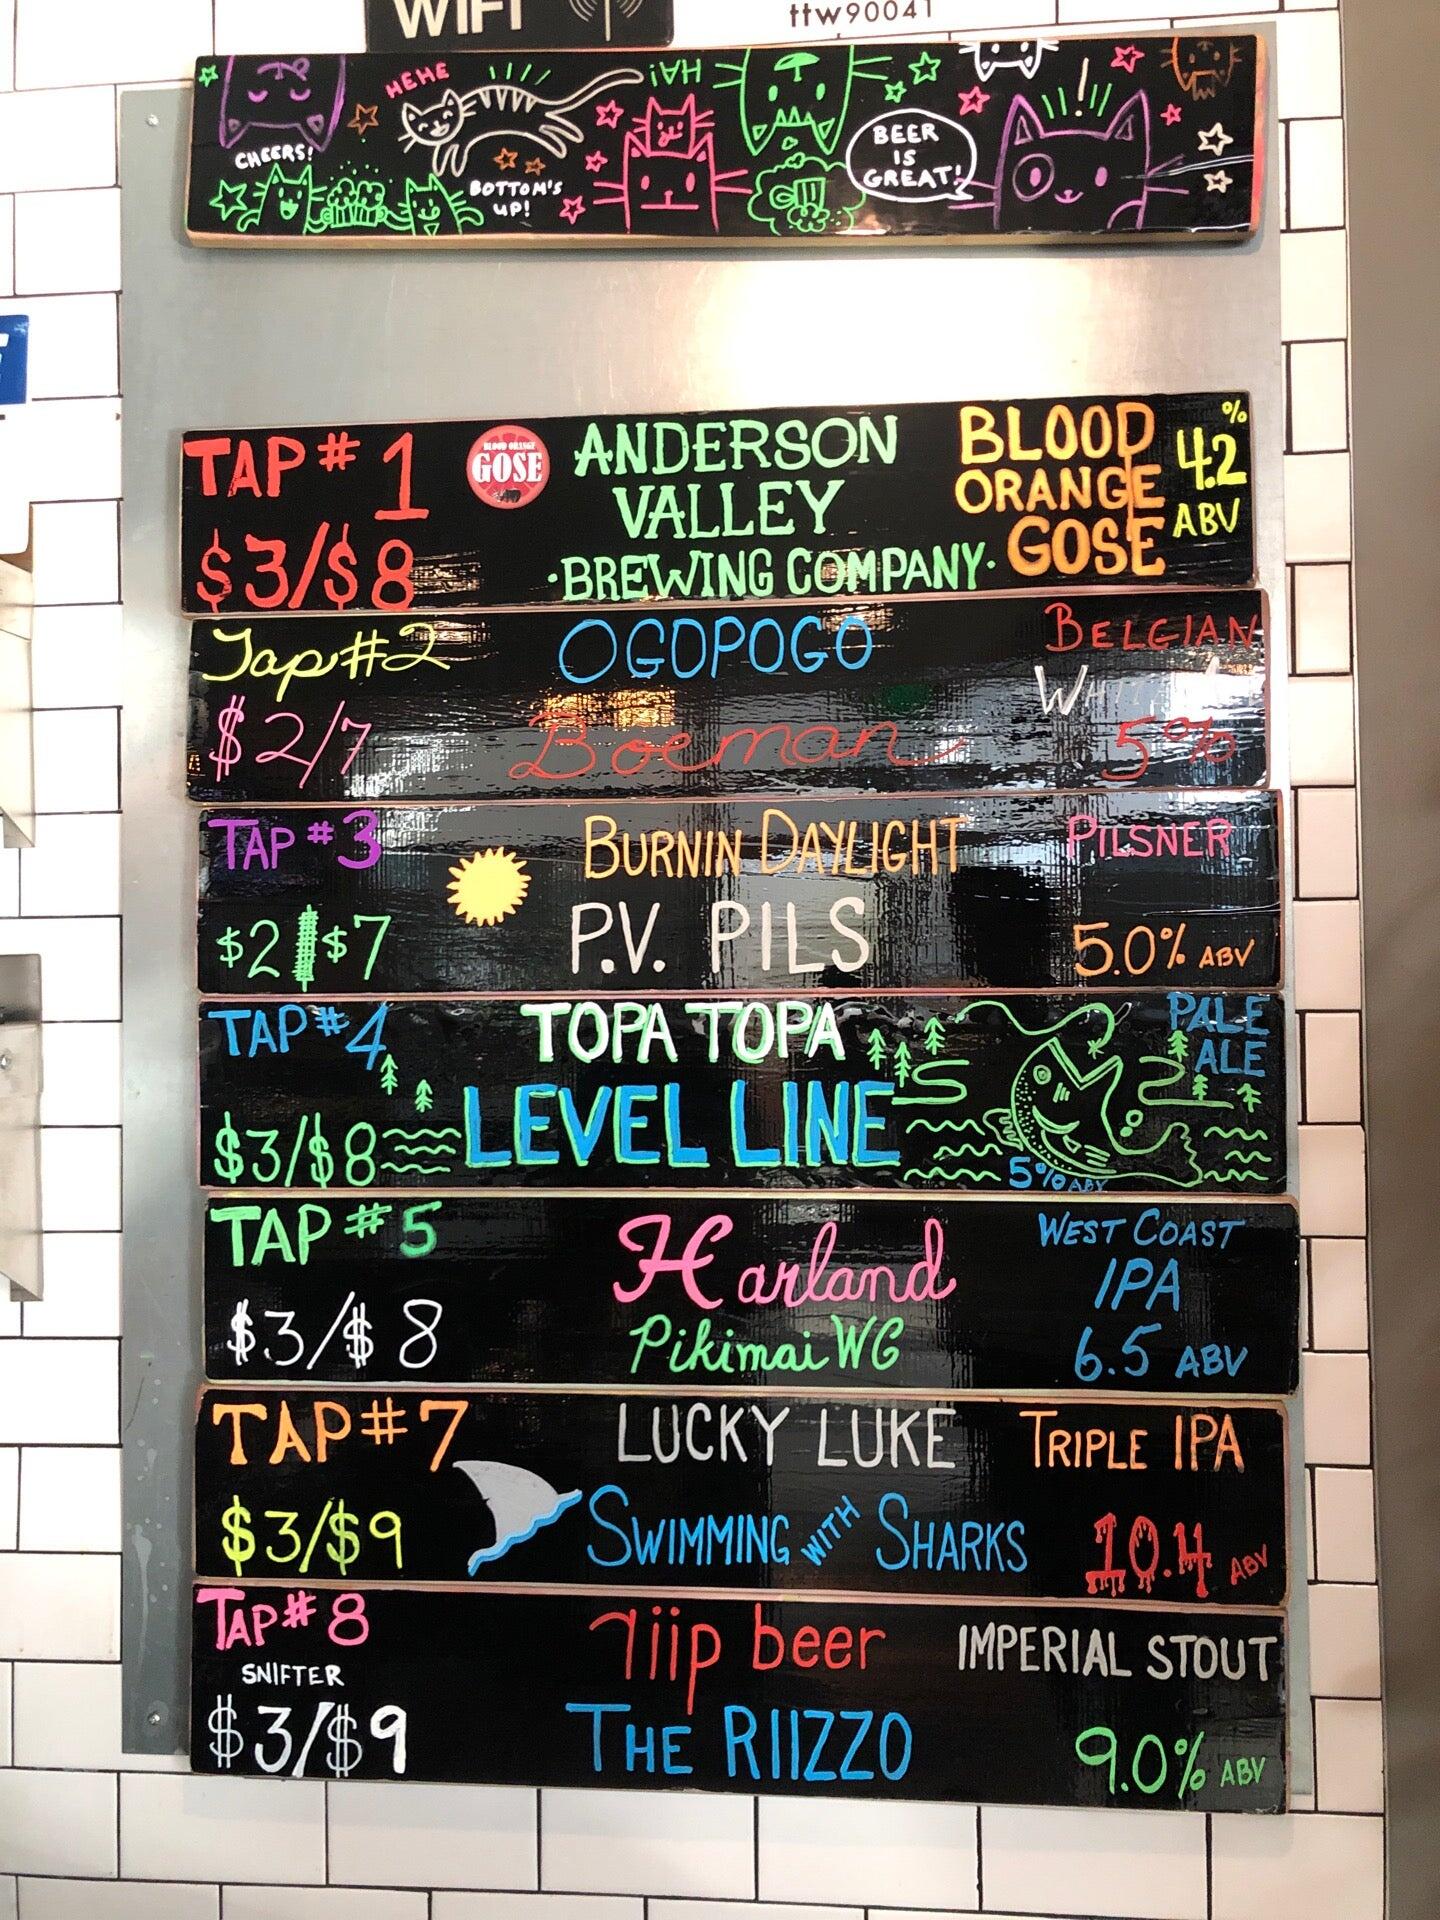 WIFI
ttw90041
HEHE
HA!
CHEERS!
BOTTOM'S
UP!
BEER
IS
GREAT!
!
TAP #1
$3/$8
BLOOD ORANGE
GOSE
ANDERSON
VALLEY
·BREWING COMPANY·
BLOOD
ORANGE
GOSE
4.2%
ABV
Tap #2
$2/7
OGOPOGO
Boeman
BELGIAN
5%
TAP #3
$2/$7
BURNIN DAYLIGHT
P.V. PILS
PILSNER
5.0% ABV
TAP #4
$3/$8
TOPA TOPA
LEVEL LINE
PALE
ALE
5% ABV
TAP #5
$3/$8
Harland
Pikimai WG
WEST COAST
IPA
6.5 ABV
TAP #7
$3/$9
LUCKY LUKE
SWIMMING WITH SHARKS
TRIPLE IPA
10.4 ABV
TAP #8
SNIFTER
$3/$9
riip beer
THE RIIZZO
IMPERIAL STOUT
9.0% ABV